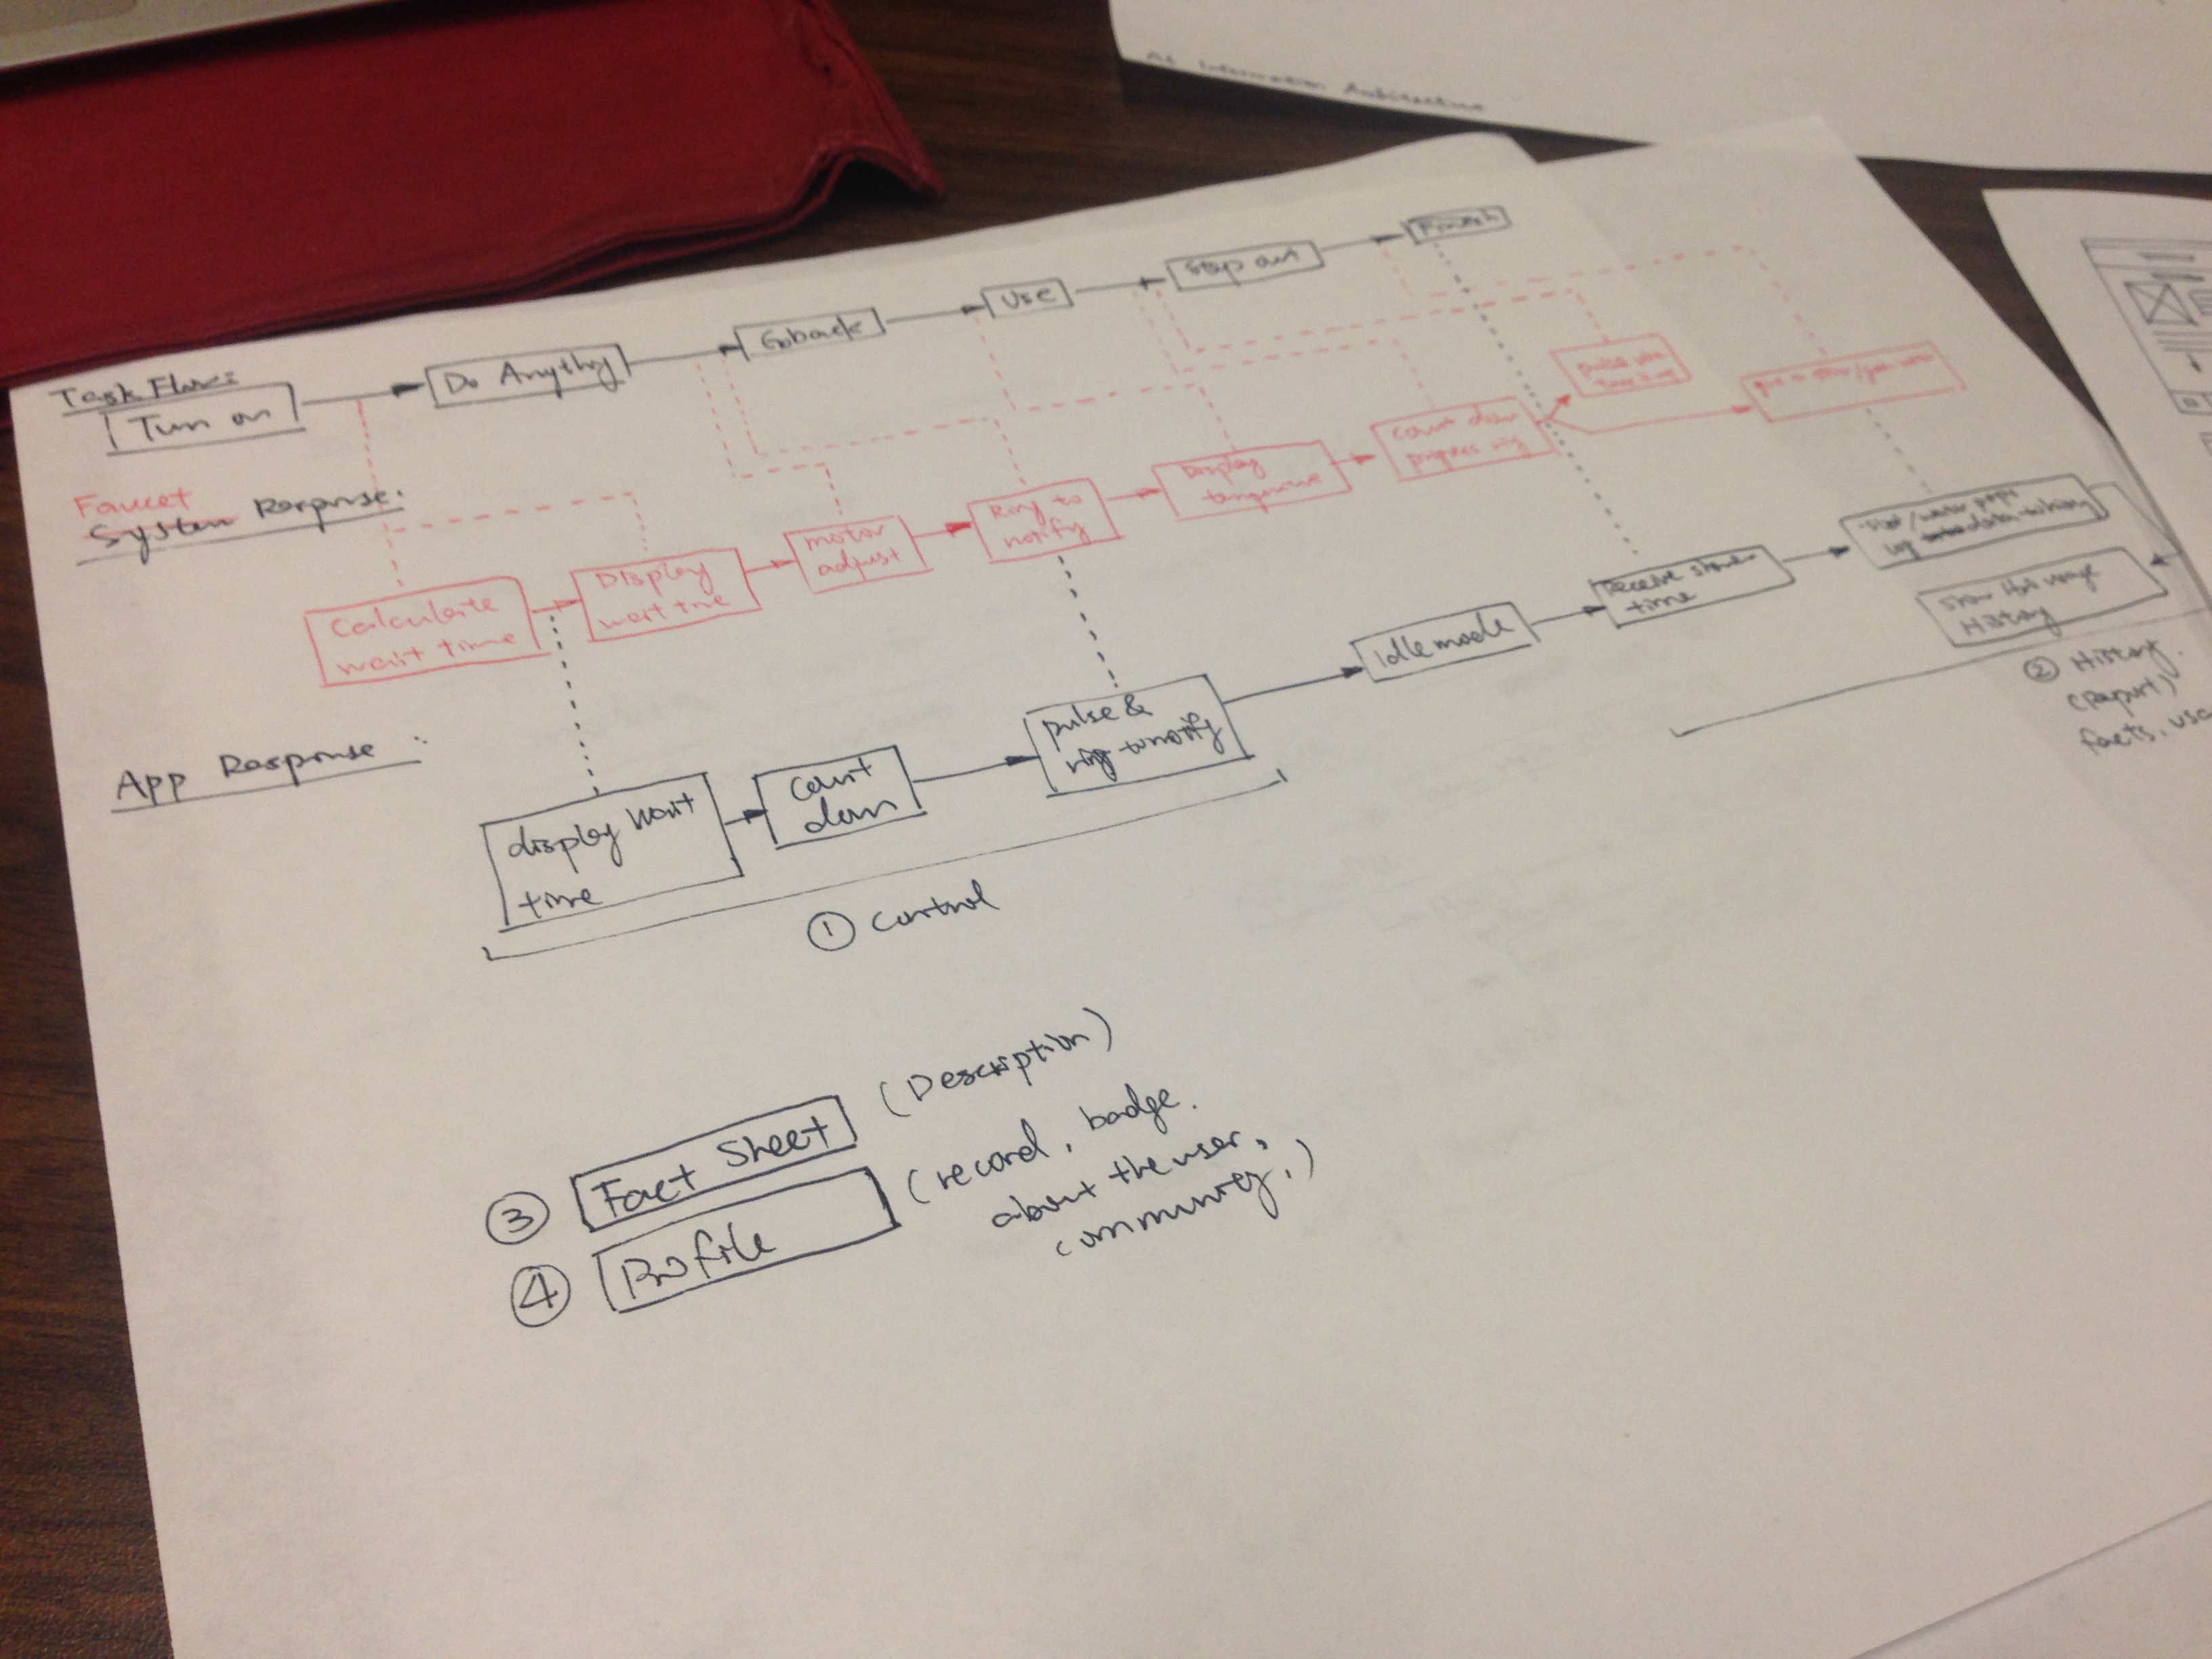 Information Architecture
Task Flow:
Turn on
Do Anything
Go back
Use
Step out
Finish
Faucet
System Response:
Calculate
wait time
Display
wait time
motor
adjust
Ring to
notify
Display
count down
progress ring
pulse when
App Response:
display wait
time
count
down
pulse &
ring to notify
Idle mode
Receive shower
time
Show
usage
History
① Control
② History.
(Report)
facts, usa
③ Fact Sheet (Description)
④ Profile (record, badge.
about the user,
community,)